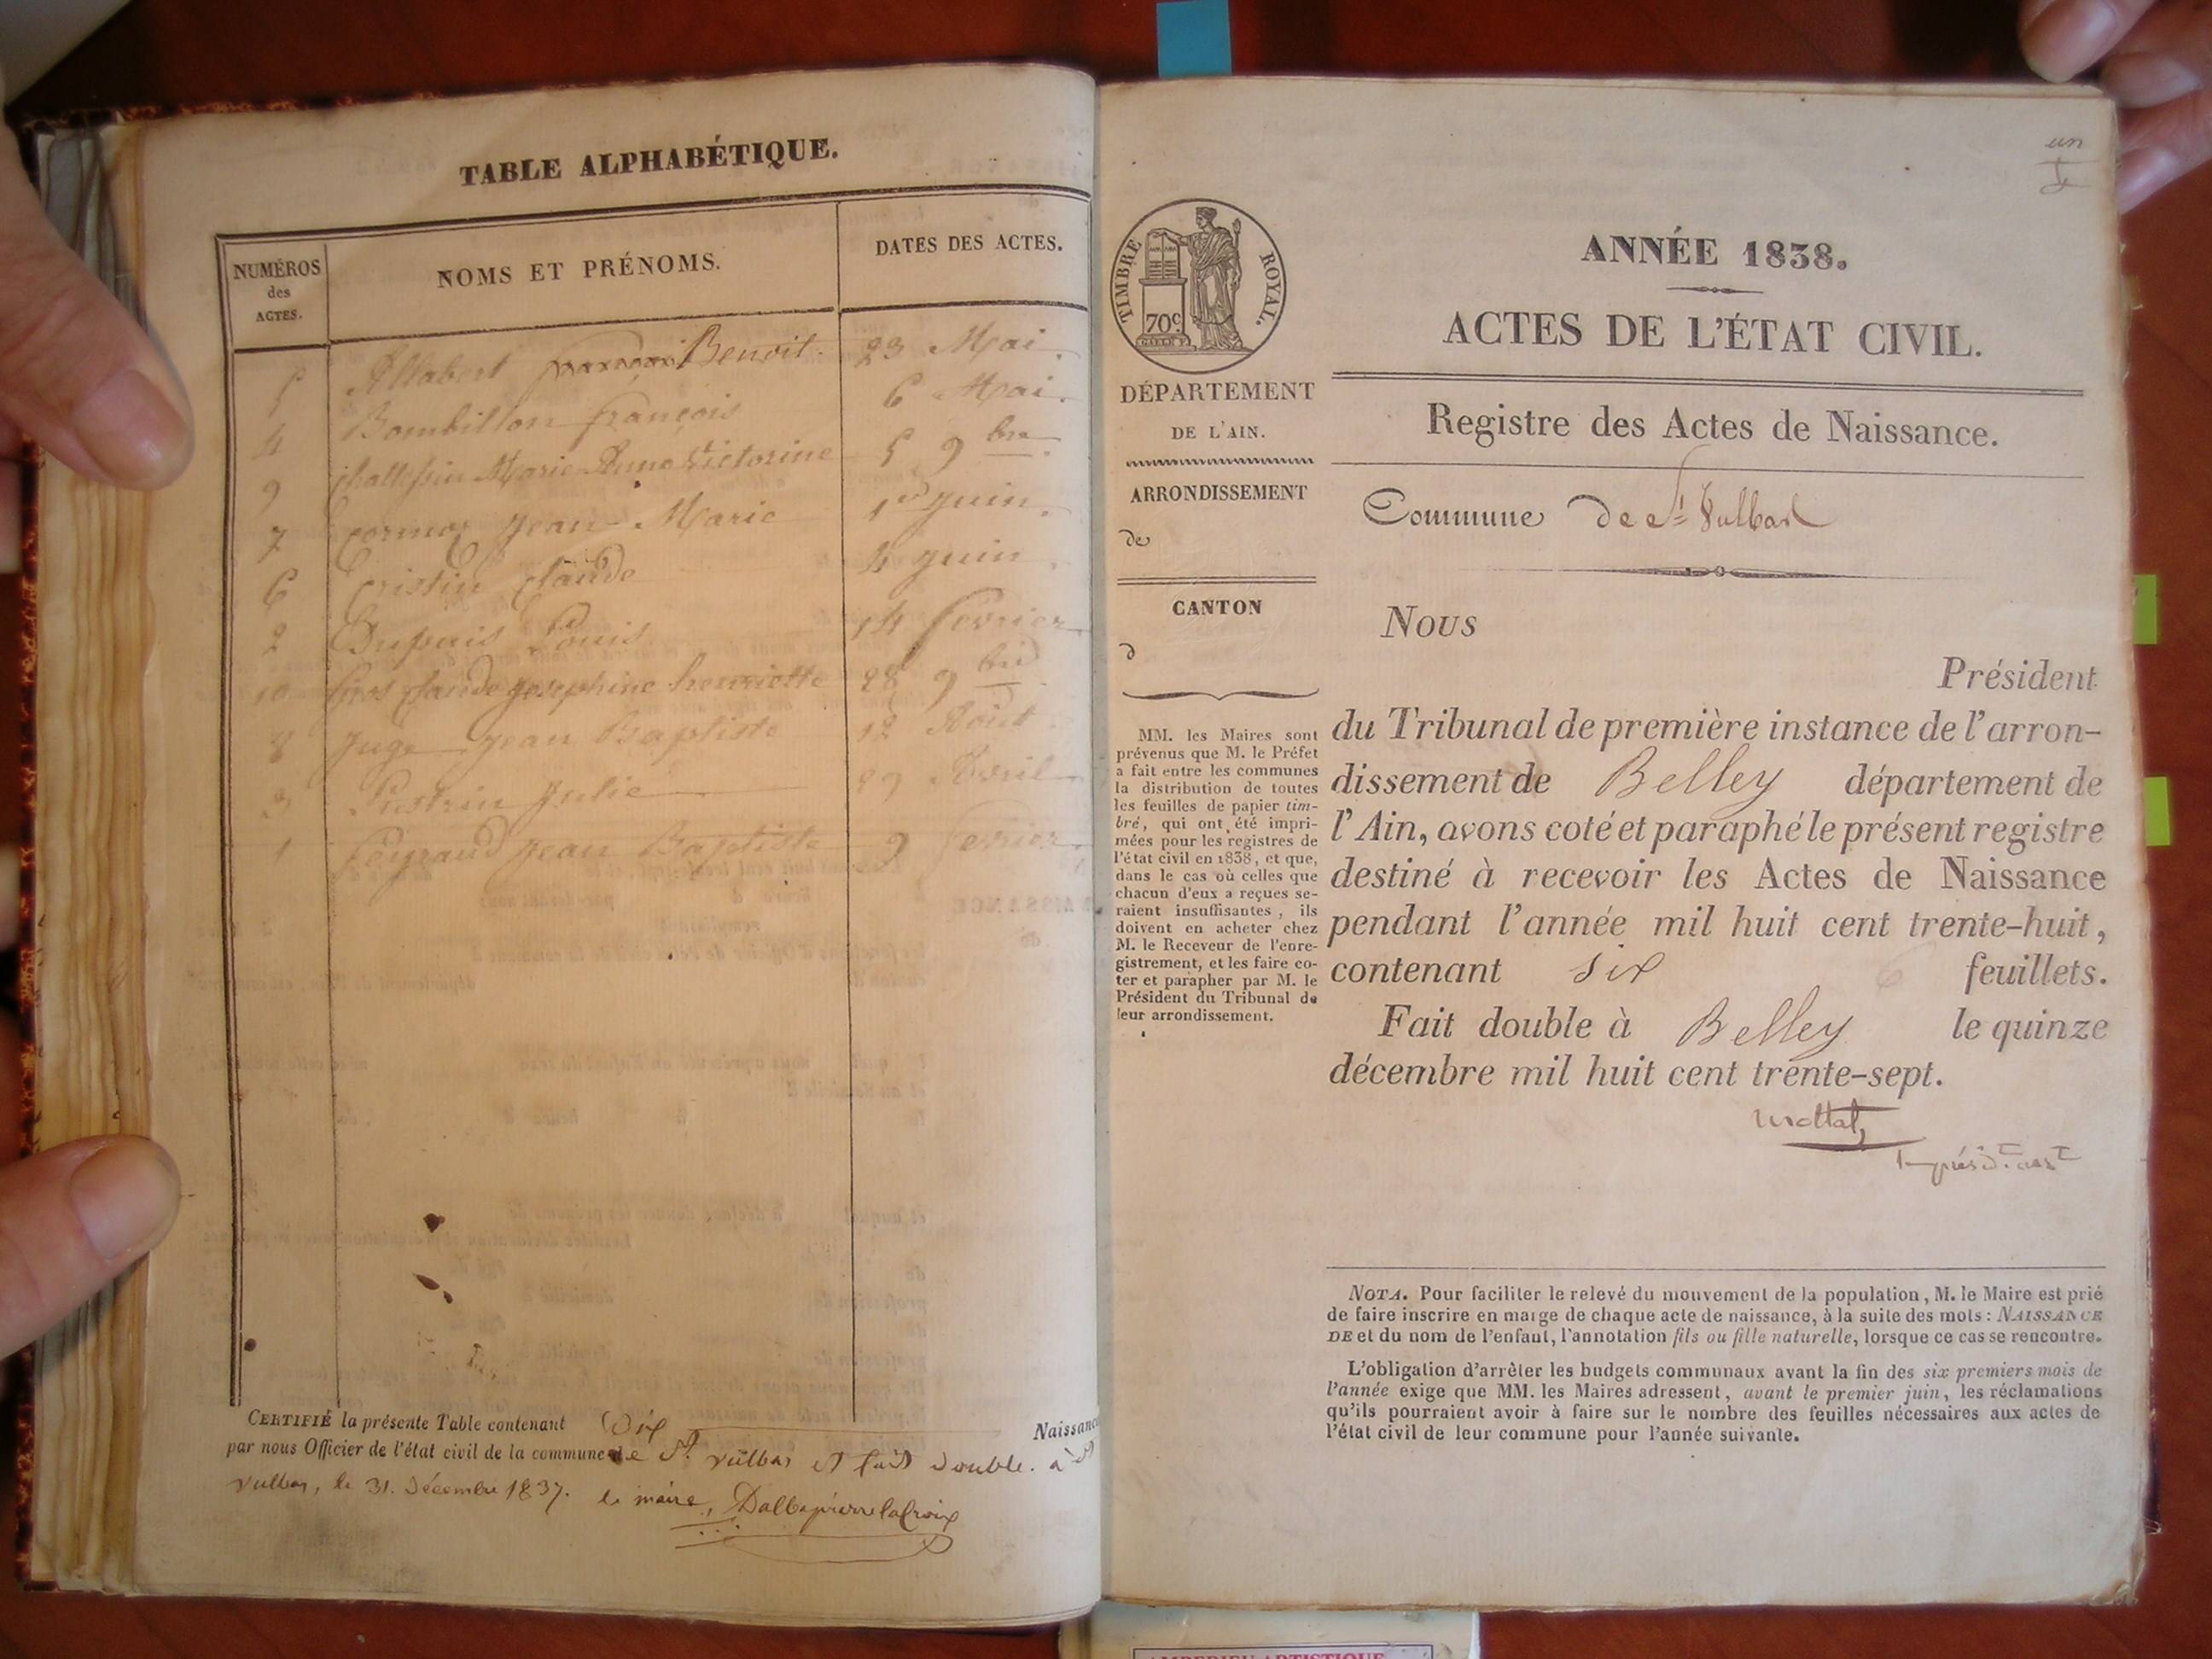 TABLE ALPHABÉTIQUE.
NUMÉROS des ACTES.
NOMS ET PRÉNOMS.
DATES DES ACTES.
5 Allabert Benoit. 23 Mai.
4 Bombillon françois 6 Mai.
9 Marie Anne Victorine 5 9bre.
7 Cormoz Jean-Marie 1er Juin.
6 Cristin Claude 4 Juin
2 Dupuis Louis 14 février
10 Gros Claude Josephine henriette 28 9bre
8 Juge Jean Baptiste 12 Aout
3 Julie 29 Avril
1 Peyraud Jean Baptiste 9 fevrier
CERTIFIÉ la présente Table contenant Dix Naissance
par nous Officier de l'état civil de la commune de St. vulbas et fait double. à St
vulbas, le 31. Décembre 1837. le maire, Dallapierrelacroix
un
ANNÉE 1838.
ACTES DE L'ÉTAT CIVIL.
TIMBRE ROYAL.
70c
DÉPARTEMENT
DE L'AIN.
ARRONDISSEMENT
de
CANTON
d
MM. les Maires sont
prévenus que M. le Préfet
a fait entre les communes
la distribution de toutes
les feuilles de papier tim-
bré, qui ont été impri-
mées pour les registres de
l'état civil en 1838, et que,
dans le cas où celles que
chacun d'eux a reçues se-
raient insuffisantes, ils
doivent en acheter chez
M. le Receveur de l'enre-
gistrement, et les faire co-
ter et parapher par M. le
Président du Tribunal de
leur arrondissement.
Registre des Actes de Naissance.
Commune de St Vulbas
Nous
Président
du Tribunal de première instance de l'arron-
dissement de Belley département de
l'Ain, avons coté et paraphé le présent registre
destiné à recevoir les Actes de Naissance
pendant l'année mil huit cent trente-huit,
contenant six 6 feuillets.
Fait double à Belley le quinze
décembre mil huit cent trente-sept.
NOTA. Pour faciliter le relevé du mouvement de la population, M. le Maire est prié
de faire inscrire en marge de chaque acte de naissance, à la suite des mots : NAISSANCE
DE et du nom de l'enfant, l'annotation fils ou fille naturelle, lorsque ce cas se rencontre.
L'obligation d'arrêter les budgets communaux avant la fin des six premiers mois de
l'année exige que MM. les Maires adressent, avant le premier juin, les réclamations
qu'ils pourraient avoir à faire sur le nombre des feuilles nécessaires aux actes de
l'état civil de leur commune pour l'année suivante.
AMBERIEU ARTISTIQUE